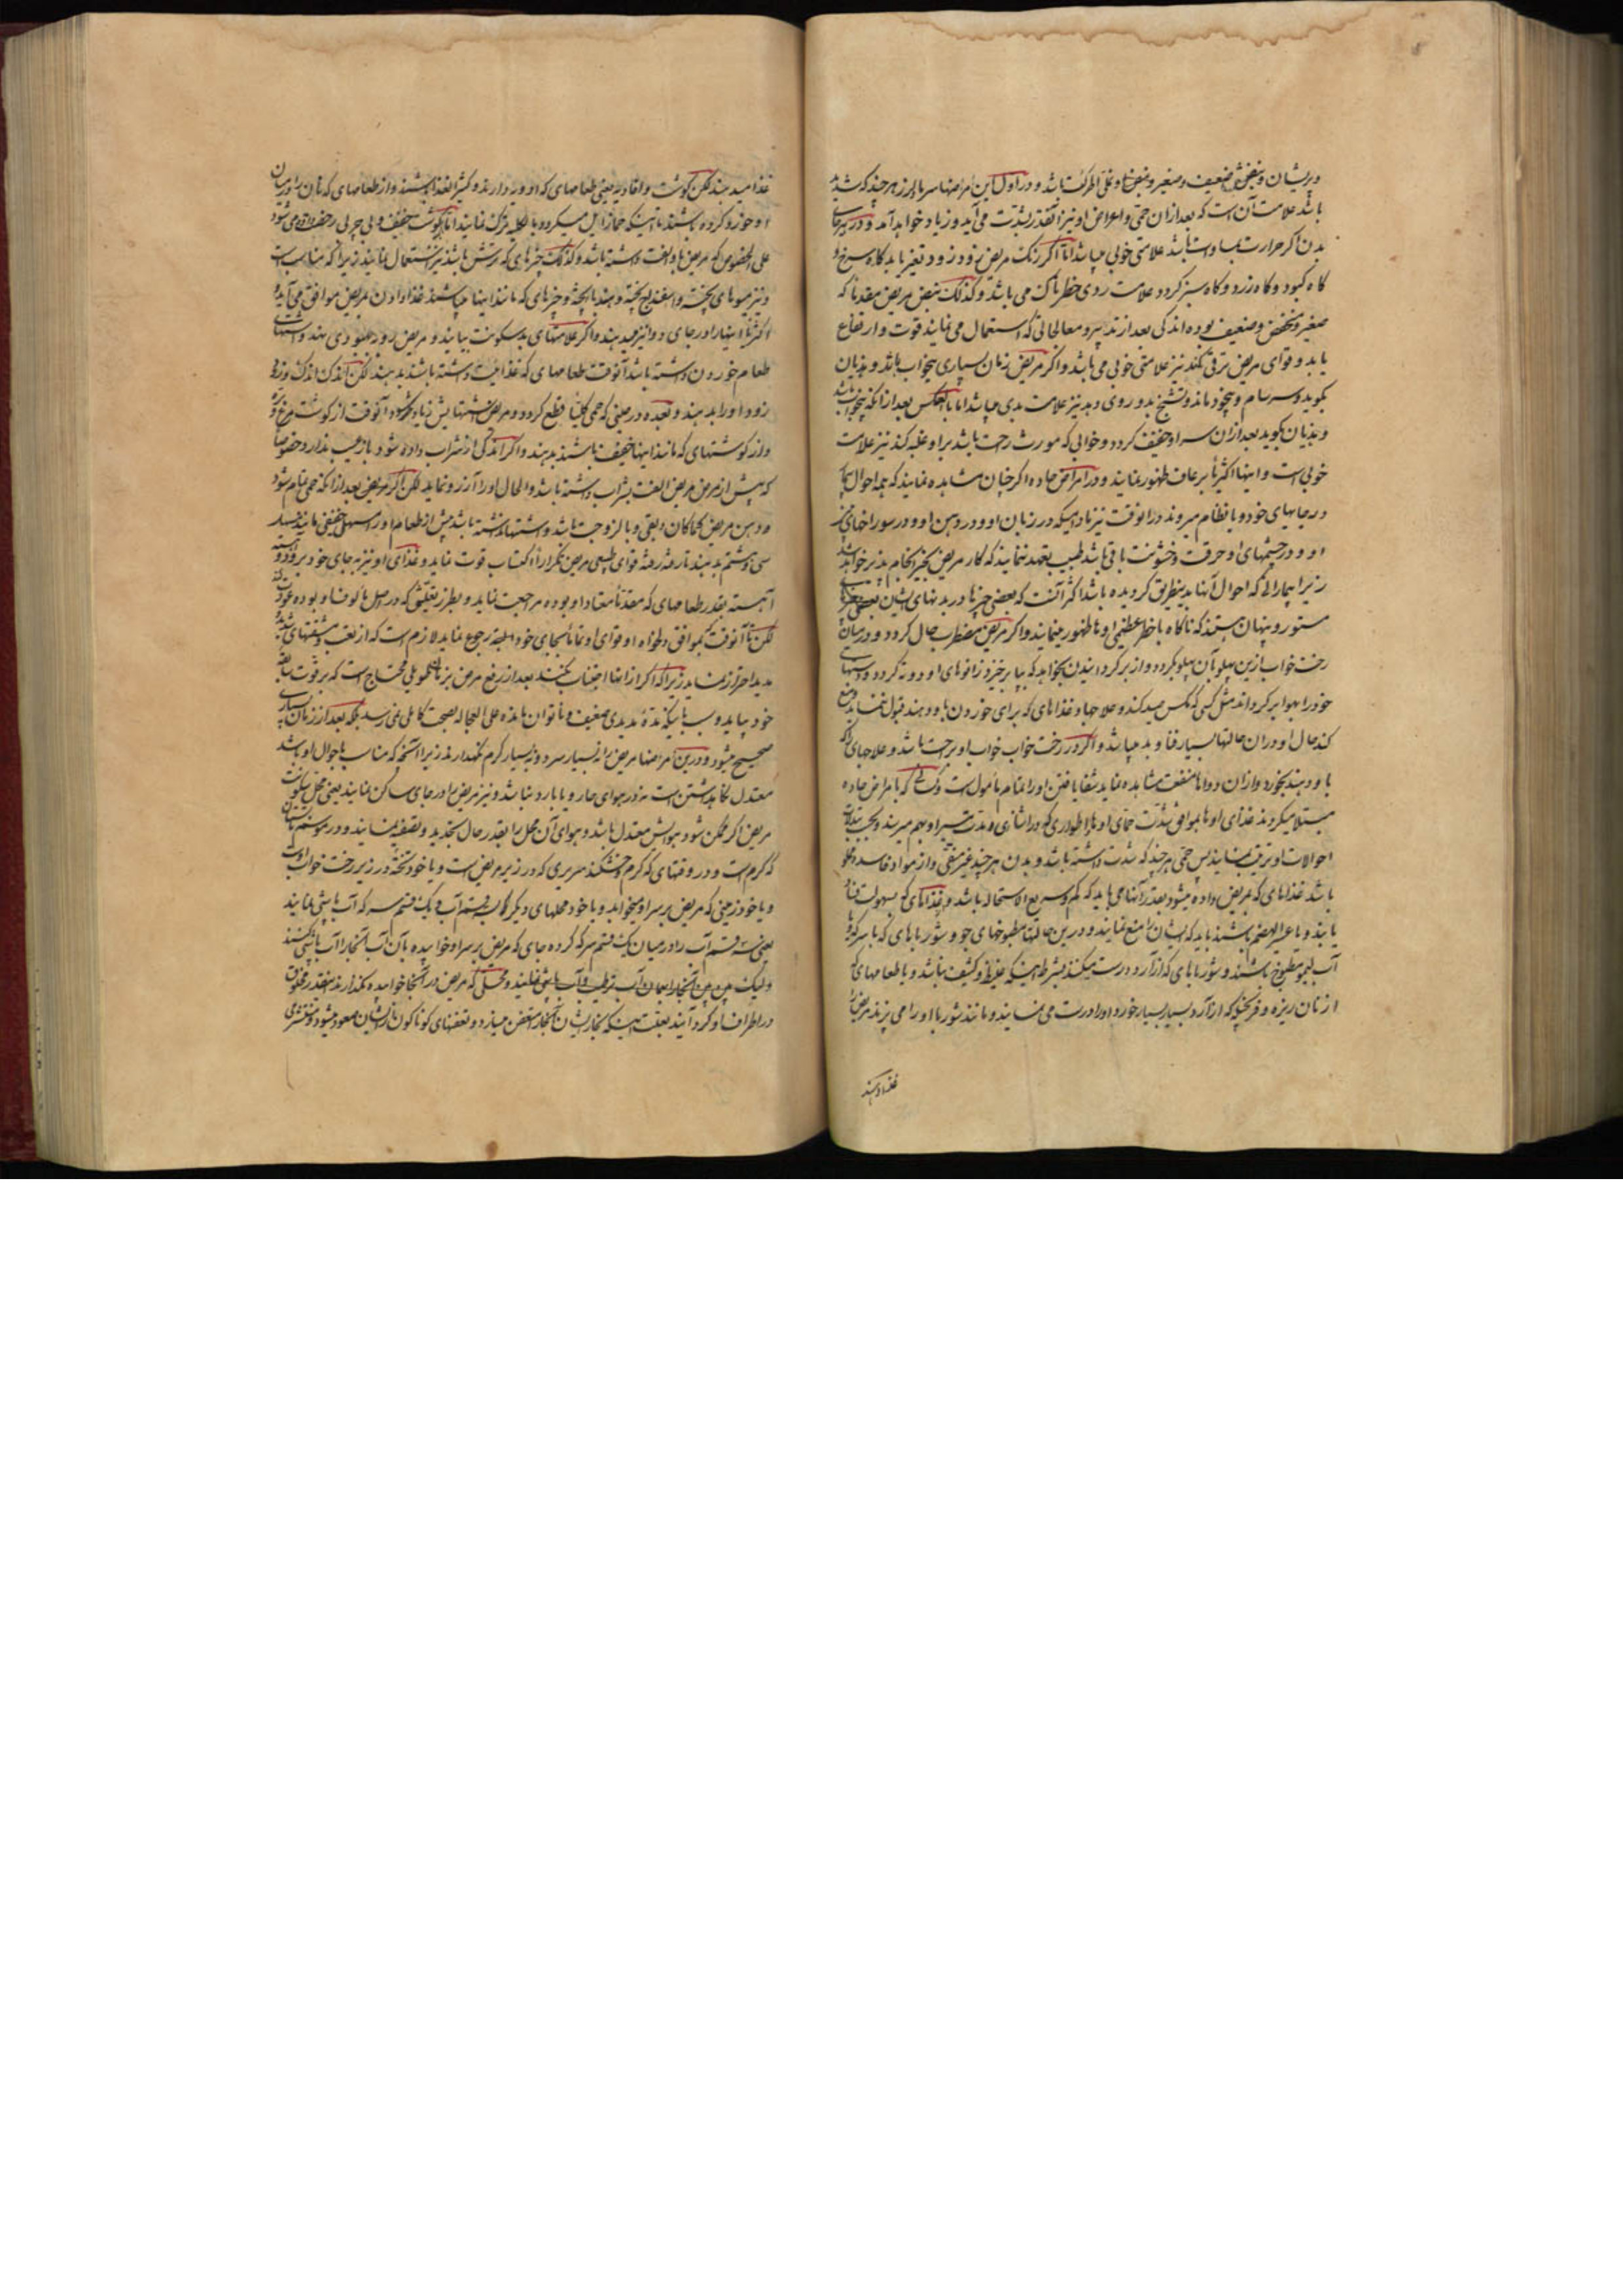 و پریشان و نبضش ضعیف و صغیر و نبض او علی الحرکت باشد و در اول این مرضها سر با لرز هرچند که شدید
باشد علامت آن است که بعد از آن حمی و اعراض او نیز آنقدر بشدت می آید و زیاد خواهد آمد و در سایر جای
بدن اگر حرارت بمساوات باشد علامتی خوبی میباشد اما اگر رنگ مریض زود زود تغیر یابد گاه سرخ و
گاه کبود و گاه زرد و گاه سبز گردد علامت ردی خطرناک می باشد و کذلک نبض مریض مقدما که
صغیر و منخفض و ضعیف بوده اندکی بعد از تدبیر و معالجاتی که استعمال می نمایند قوت و ارتفاع
یابد و قوای مریض ترقی کند نیز علامتی خوبی می باشد و اگر مریض زمان بسیاری بیخواب باشد و هذیان
بگوید و سرسام و بیخود ماند و تشنج بدو روی دهد نیز علامت بدی میباشد اما بالعکس بعد از آنکه بیخواب باشد
و هذیان بگوید بعد از آن سر او خفیف گردد و خوابی که مورث راحت باشد بر او غلبه کند نیز علامت
خوبی است و اینها اکثریا برعاف ظهور نمایند و در امراض حاده اگر چنان مشاهده نمایند که همه احوال بیمار
در جایهای خود و بانظام میروند در آنوقت نیز مادامیکه در زبان او و در دهن او و در سوراخهای بینی
او و در چشمهای او حرقت و خشونت باقی باشد طبیب تعهد ننماید که کار مریض بخیر انجام پذیر خواهد شد
زیرا بیمارانی که احوال آنها بدینطریق گردیده باشد اکثر آنست که بعضی چیزها در بدنهای ایشان
مستور و پنهان هستند که ناگاه با خطر عظیمی او نا ظهور مینمایند و اگر مریض مضطرب حال گردد و در میان
رخت خواب ازین پهلو بآن پهلو بگردد و از بر گردانیدن بخواهد که بپا برخیزد زانوهای او دوته گردد و دستهای
خود را بهوا برگرداند مثل کسی که مگس صید کند و علاجها و غذاهای که برای خوردن باو دهند قبول ننماید و منع
کند حال او در آن حالتها بسیار فنا و بد میباشد و اگر در رخت خواب خواب او براحت باشد و علاجهای را که
باو دهند بخورد و از آن دواها منفعت مشاهده نماید شفا یافتن او را تمام مأمول است و کسانی که بامراض حاده
مبتلا میگردند غذای او ها بموافق شدت حمای او ها
احوالات او ترتیب نمایند پس حمی هرچند که شدت داشته باشد و بدن هرچند غیر منقی و از مواد فاسده مملو
باشد غذاهای که بمریض داده میشود بقدر آنها می باید که کم و سریع الاستحاله باشد و غذاهای که بسهولت فساد
یابند و یا عسیر الهضم باشند باید که ایشان را منع نمایند و درین حالتها مطبوخهای جو و شورباهای که با سرکه و یا
آب لیمو مطبوخ باشند و شورباهای که از آرد درست میکنند بشرط اینکه غلیظ و کثیف نباشد و یا طعامهای که
از نان ریزه و فرنجیکه از آرد بسیار بسیار خورد او را درست می نمایند و مانند شوربا او را می پزند بمریض
غذا دهند
غذا میدهند لکن گوشت و افادیه یعنی طعامهای که او ویه دارند و کثیر الغذا باشند و از طعامهای که نان را در میان
او خورد کرده باشند تا اینکه حما زایل میگردد بالکلیه ترک نمایند اما گوشت خفیف و بی چربی رخصت داده می شود
علی الخصوص که مریض باو الفت داشته باشد و کذلک چیزهای که ترش باشند نیز استعمال نمایند زیرا که مناسب است
و نیز میوهای پخته و اسفناج پخته و هندبا پخته و چیزهای که مانند اینها میباشند غذا دادن بمریض موافق می آید و
اکثریا اینها را در جای دوا نیز میدهند و اگر علامتهای بد سکونت بیابند و مریض رو به بهبودی نهد و اشتهای
طعام خوردن داشته باشد آنوقت طعامهای که غذائیت داشته باشند بدهند لکن اندک اندک و زود
زود او را بدهند و بعده در حینی که حمی کلیا قطع گردد و مریض اشتهایش زیاد گردد آنوقت از گوشت مرغ و بره
و از گوشتهای که مانند اینها خفیف باشند بدهند و اگر اندکی از شراب داده شود باز عیب ندارد خصوصا
که پیش از مرض مریض الفت بشراب داشته باشد و الحال او را آرزو نماید لکن اگر مریض بعد از آنکه حمی تمام شود
و دهن مریض کماکان دبقی و با لزوجت باشد و اشتها نداشته باشد پیش از طعام او را مسهل خفیفی مانند
سی و هشتم بدهند تا رفته رفته قوای طبیعی مریض تکرارا اکتساب قوت نماید و غذای او نیز بجای خود برود و آهسته
آهسته بقدر طعامهای که مقدما معتاد او بوده مراجعت نماید و بطرز تعیش که در اصل مألوف او بوده عودت کند
لکن تا آنوقت که بموافق دلخواه او قوای او تماما بجای خود البته رجوع نماید لازم است که از تعب و مشقتهای شدید و
مدید احتراز نماید زیرا که اگر از اینها اجتناب نکنند بعد از رفع مرض نیز زمان طویلی محتاج است که بر قوت سابقه
خود بیاید و سبب اینکه تن بدیدی ضعیف و ناتوان مانده علی العجاله بصحت کاملی نمی رسد بلکه بعد از زمان بسیاری
صحیح میشود و درین مرضها مریض را نه بسیار سرد و نه بسیار گرم نگهدارند زیرا آنچه که مناسب باحوال او باشد
معتدل نگاهداشتن است نه در هوای حار و یا بارد نباشد و نیز مریض را در جای ساکن نمایند یعنی محل سکونت
مریض اگر ممکن شود هوایش معتدل باشد و هوای آن محل را بقدر حال تجدید و تصفیه نمایند و در موسم تابستان
که گرم است و در وقتهای که گرم و خشکند سریری که در زیر مریض است و یا خود تختهٔ در زیر رخت خواب او
و یا خود زمینی که مریض بر سر او میخوابد و یا خود محلهای دیگر که باشد بسه قسم آب و یک قسم سرکه آب پاشی نمایند
یعنی سه قسم آب را در میان یک قسم سرکه کرده جای که مریض بر سر او خوابیده بآن آب آنجا را آب پاشی کنند
ولیکن چون چون آنجا را بهمان آب ترطیب و آب پاشی نمایند و محلی که مریض در آنجا خوابیده نگذارند اینقدر مخلوق
در اطراف او گرد آیند بعلت اینکه بخار ایشان آنجا را متعفن میسازد و تعفنهای گوناگون از ایشان صعود میشود و منتشر